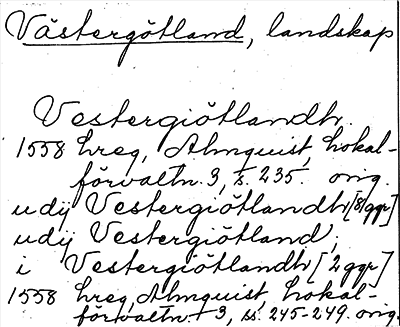 Västergötland, landskap
Vestergiötlandh.
1558 hreg, Almquist, Lokal-
förvaltn. 3, s. 235. orig.
udij Vestergiötlandh [8 ggr]
udij Vestergiötland,
i Vestergiötlandh [2 ggr]
1558 hreg, Almquist Lokal-
förvaltn. 3, ss. 245-249. orig.